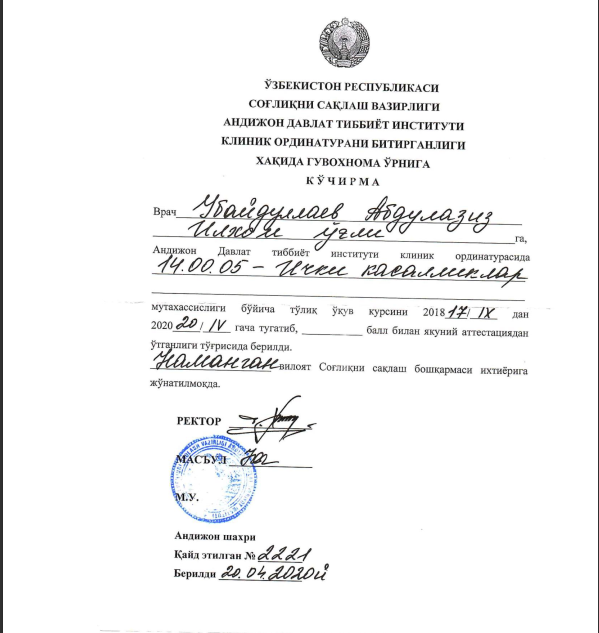 ЎЗБЕКИСТОН РЕСПУБЛИКАСИ
СОҒЛИҚНИ САҚЛАШ ВАЗИРЛИГИ
АНДИЖОН ДАВЛАТ ТИББИЁТ ИНСТИТУТИ
КЛИНИК ОРДИНАТУРАНИ БИТИРГАНЛИГИ
ХАҚИДА ГУВОХНОМА ЎРНИГА
КЎЧИРМА
Врач Убайдуллаев Абдулазиз
Илхом ўғли га,
Андижон Давлат тиббиёт институти клиник ординатурасида
14.00.05 – Ички касалликлар
мутахассислиги бўйича тўлиқ ўқув курсини 2018 17/ IX дан
2020 20/ IV гача тугатиб, ___________ балл билан якуний аттестациядан
ўтганлиги тўғрисида берилди.
Наманган вилоят Соғлиқни сақлаш бошқармаси ихтиёрига
жўнатилмоқда.
РЕКТОР
МАСЪУЛ
М.У.
Андижон шахри
Қайд этилган № 2221
Берилди 20.04.2020й